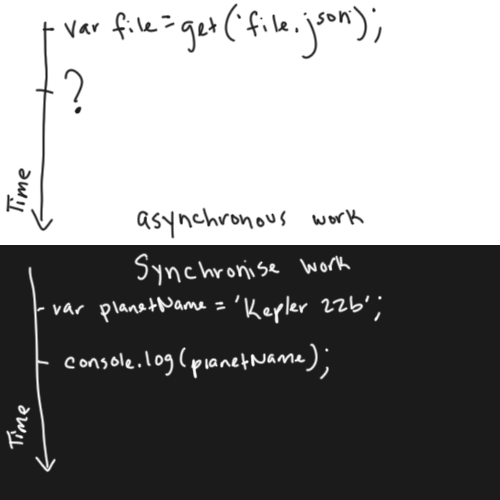 var file = get('file.json');
?
Time
asynchronous work
Synchronise work
var planetName = 'Kepler 22b';
console.log(planetName);
Time